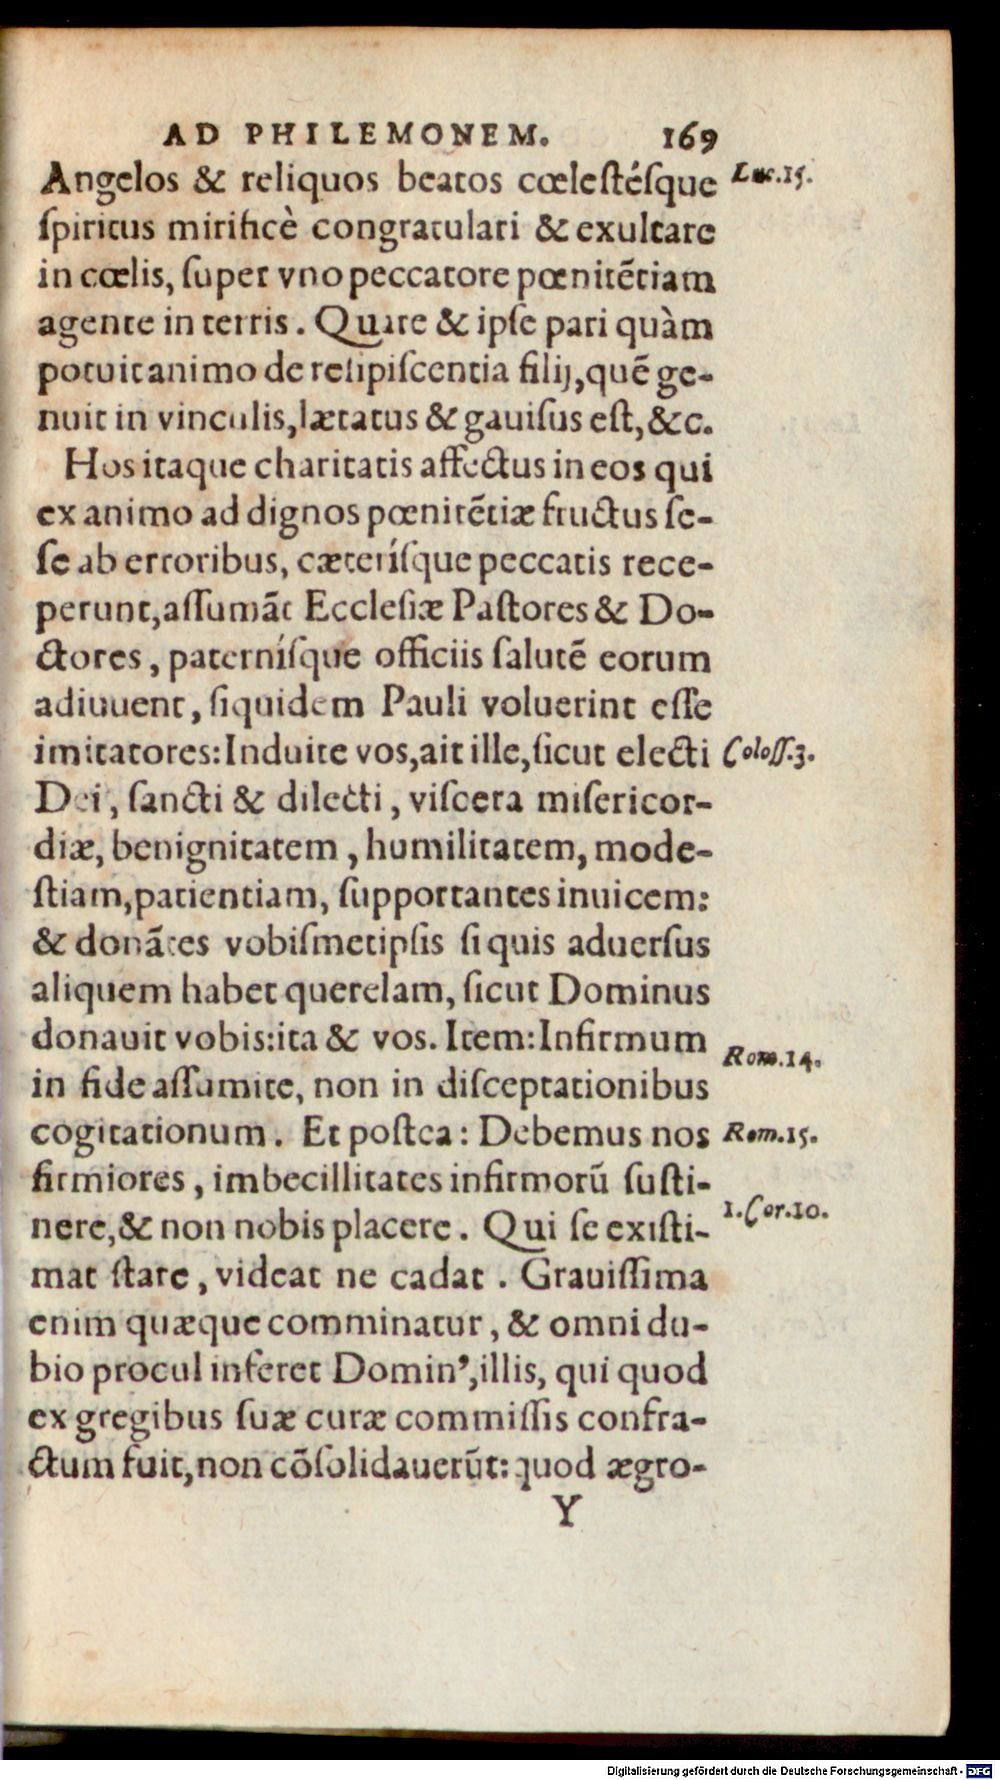 AD PHILEMONEM. 169
Angelos & reliquos beatos cœlestésque Luc.15.
spiritus mirificè congratulari & exultare
in cœlis, super vno peccatore pœnitẽtiam
agente in terris. Quare & ipse pari quàm
potuit animo de resipiscentia filij, quẽ ge-
nuit in vinculis, lætatus & gauisus est, &c.
Hos itaque charitatis affectus in eos qui
ex animo ad dignos pœnitẽtiæ fructus se-
se ab erroribus, cæterísque peccatis rece-
perunt, assumãt Ecclesiæ Pastores & Do-
ctores, paternísque officiis salutẽ eorum
adiuuent, siquidem Pauli voluerint esse
imitatores: Induite vos, ait ille, sicut electi Coloss.3.
Dei, sancti & dilecti, viscera misericor-
diæ, benignitatem, humilitatem, mode-
stiam, patientiam, supportantes inuicem:
& donãtes vobismetipsis si quis aduersus
aliquem habet querelam, sicut Dominus
donauit vobis: ita & vos. Item: Infirmum Rom.14.
in fide assumite, non in disceptationibus
cogitationum. Et postea: Debemus nos Rom.15.
firmiores, imbecillitates infirmorũ susti-
nere, & non nobis placere. Qui se existi- 1.Cor.10.
mat stare, videat ne cadat. Grauissima
enim quæque comminatur, & omni du-
bio procul inferet Domin', illis, qui quod
ex gregibus suæ curæ commissis confra-
ctum fuit, non cõsolidauerũt: quod ægro-
Y
Digitalisierung gefördert durch die Deutsche Forschungsgemeinschaft - DFG